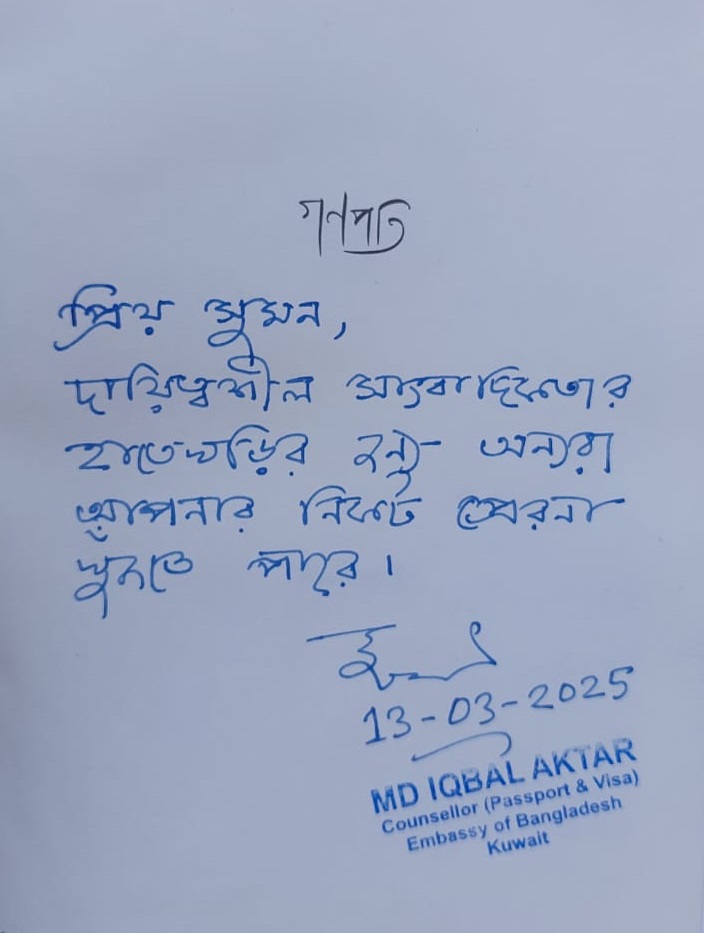 গণপতি
প্রিয় সুমন,
দায়িত্বশীল সাংবাদিকতার
হাতেখড়ির জন্য অন্যরা
আপনার নিকট প্রেরনা
খুঁজতে পারে।
13-03-2025
MD IQBAL AKTAR
Counsellor (Passport & Visa)
Embassy of Bangladesh
Kuwait